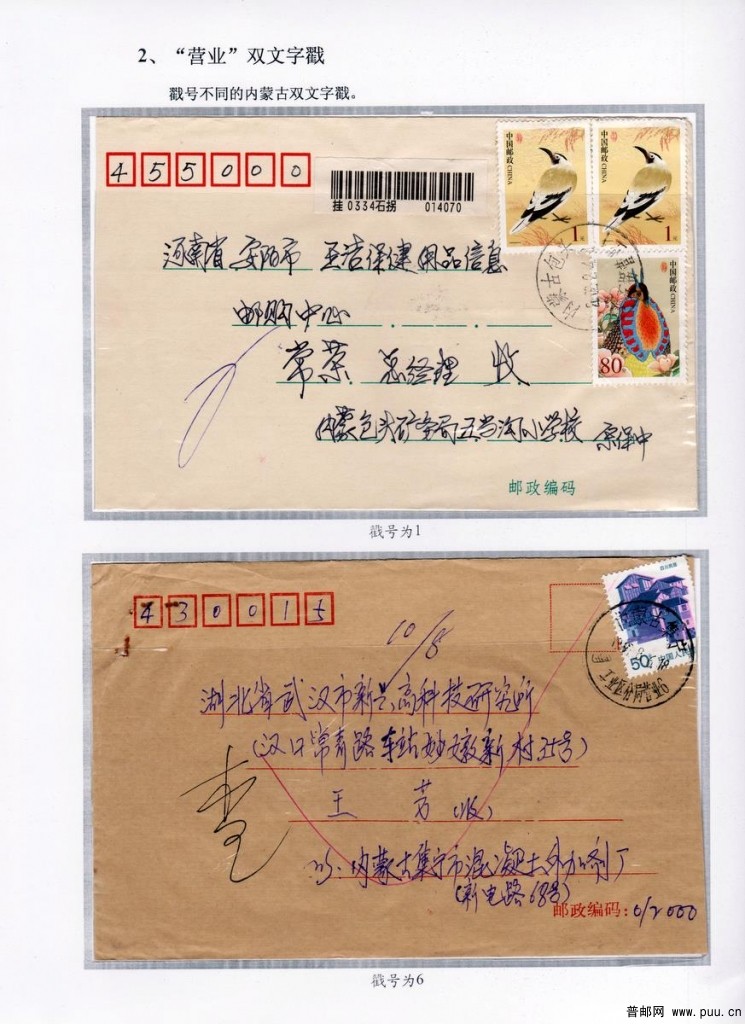 2、“营业”双文字戳
戳号不同的内蒙古双文字戳。
455000
挂0334石拐 014070
中国邮政 CHINA
1元
中国邮政 CHINA
1元
中国邮政 CHINA
80
河南省安阳市 保健用品信息
邮购中心
常荣 总经理 收
内蒙包头矿务局五当沟小学校
邮政编码
戳号为1
430015
10/8
50分
工业区分局营业6
湖北省武汉市新兴高科技研究所
(汉口常青路车站妙墩新村35号)
王芳(收)
查
内蒙古集宁市混凝土外加剂厂
(新电路68号)
邮政编码:012000
戳号为6
普邮网 www.puu.cn